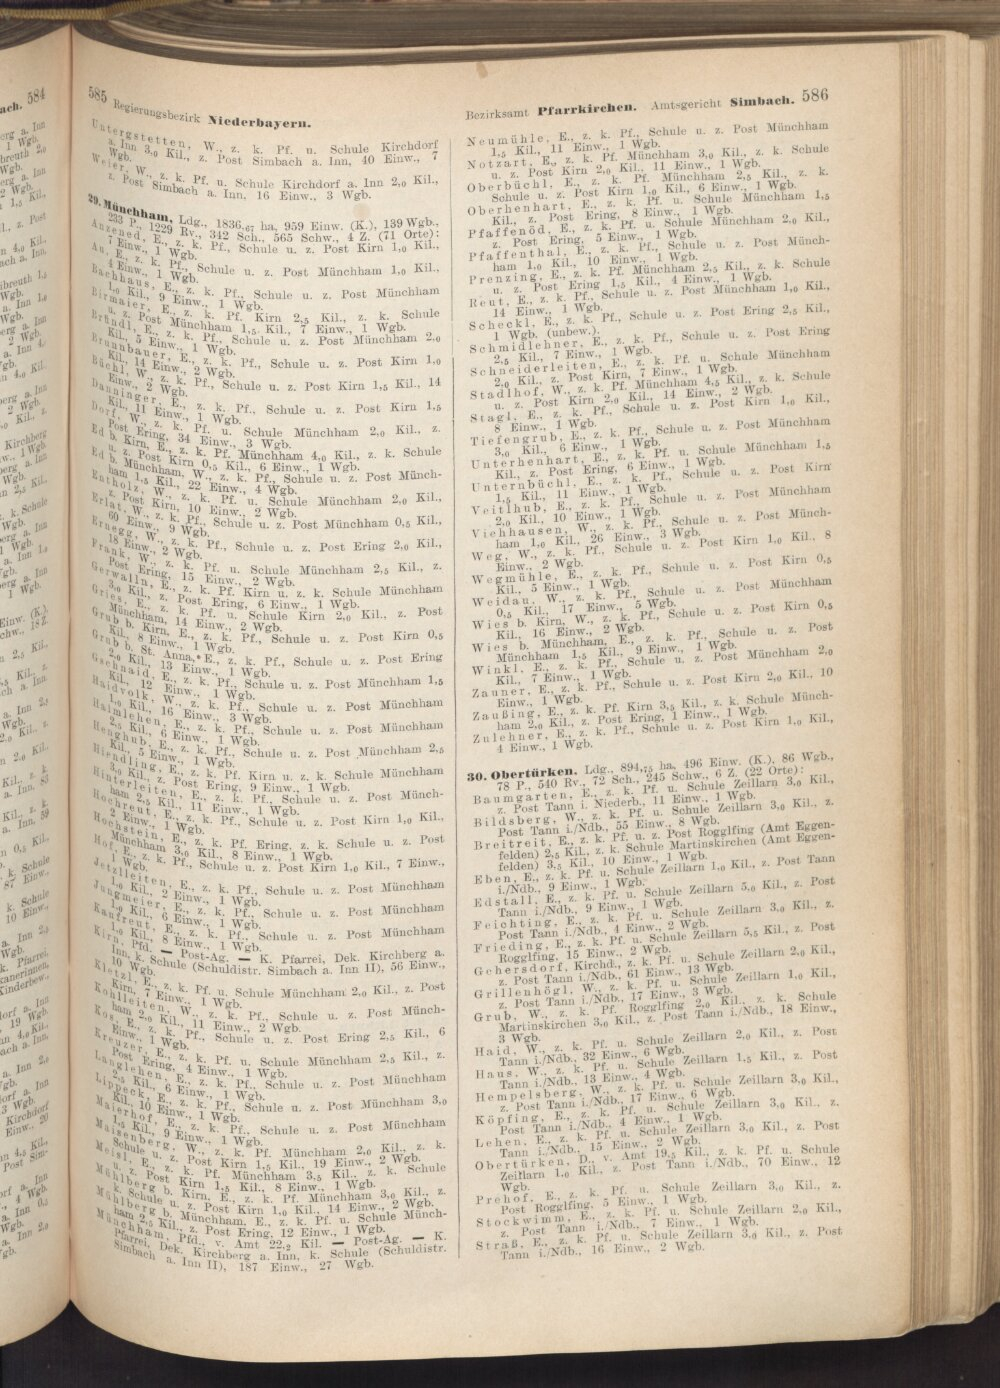 585 Regierungsbezirk Niederbayern.
Untergstetten, W., z. k. Pf. u. Schule Kirchdorf
a. Inn 3,0 Kil., z. Post Simbach a. Inn, 40 Einw., 7
Wgb.
Weier, W., z. k. Pf. u. Schule Kirchdorf a. Inn 2,0 Kil.,
z. Post Simbach a. Inn, 16 Einw., 3 Wgb.
29. Münchham, Ldg., 1836,67 ha, 959 Einw. (K.), 139 Wgb.,
233 P., 1229 Rv., 342 Sch., 565 Schw., 4 Z. (71 Orte):
Anzened, E., z. k. Pf., Schule u. z. Post Kirn 1,0 Kil.,
7 Einw., 1 Wgb.
Au, E., z. k. Pf., Schule u. z. Post Münchham 1,0 Kil.,
4 Einw., 1 Wgb.
Bachhaus, E., z. k. Pf., Schule u. z. Post Münchham
1,0 Kil., 9 Einw., 1 Wgb.
Birmaier, E., z. k. Pf. Kirn 2,5 Kil., z. k. Schule
u. z. Post Münchham 1,5 Kil., 7 Einw., 1 Wgb.
Bründl, E., z. k. Pf., Schule u. z. Post Münchham 2,0
Kil., 5 Einw., 1 Wgb.
Brunnbauer, E., z. k. Pf., Schule u. z. Post Kirn 1,0
Kil., 14 Einw., 2 Wgb.
Büchl, W., z. k. Pf., Schule u. z. Post Kirn 1,5 Kil., 14
Einw., 2 Wgb.
Danninger, E., z. k. Pf., Schule u. z. Post Kirn 1,5
Kil., 11 Einw., 1 Wgb.
Dorf, W., z. k. Pf. u. Schule Münchham 2,0 Kil., z.
Post Ering, 34 Einw., 3 Wgb.
Ed b. Kirn, E., z. k. Pf. Münchham 4,0 Kil., z. k. Schule
u. z. Post Kirn 0,5 Kil., 6 Einw., 1 Wgb.
Ed b. Münchham, W., z. k. Pf., Schule u. z. Post Münch-
ham 1,5 Kil., 22 Einw., 4 Wgb.
Entholz, W., z. k. Pf. u. Schule Münchham 2,0 Kil.,
z. Post Kirn, 10 Einw., 2 Wgb.
Erlat, W., z. k. Pf., Schule u. z. Post Münchham 0,5 Kil.,
60 Einw., 9 Wgb.
Eruegg, W., z. k. Pf., Schule u. z. Post Ering 2,0 Kil.,
18 Einw., 2 Wgb.
Frank, W., z. k. Pf. u. Schule Münchham 2,5 Kil., z.
Post Ering, 15 Einw., 2 Wgb.
Gerwalln, E., z. k. Pf. Kirn u. z. k. Schule Münchham
3,0 Kil., z. Post Ering, 6 Einw., 1 Wgb.
Gries, E., z. k. Pf. u. Schule Kirn 2,0 Kil., z. Post
Münchham, 14 Einw., 2 Wgb.
Grub b. Kirn, E., z. k. Pf., Schule u. z. Post Kirn 0,5
Kil., 8 Einw., 1 Wgb.
Grub b. St. Anna,* E., z. k. Pf., Schule u. z. Post Ering
2,0 Kil., 13 Einw., 1 Wgb.
Gschnaid, E., z. k. Pf., Schule u. z. Post Münchham 1,5
Kil., 12 Einw., 1 Wgb.
Haidvolk, W., z. k. Pf., Schule u. z. Post Münchham
1,0 Kil., 16 Einw., 3 Wgb.
Halmlehen, E., z. k. Pf., Schule u. z. Post Münchham
2,5 Kil., 6 Einw., 1 Wgb.
Henghub, E., z. k. Pf., Schule u. z. Post Münchham 2,5
Kil., 5 Einw., 1 Wgb.
Hiendling, E., z. k. Pf. Kirn u. z. k. Schule Münchham
3,0 Kil., z. Post Ering, 9 Einw., 1 Wgb.
Hinterleiten, E., z. k. Pf., Schule u. z. Post Münch-
ham 2,5 Kil., 11 Einw., 1 Wgb.
Hochreut, E., z. k. Pf., Schule u. z. Post Kirn 1,0 Kil.,
2 Einw., 1 Wgb.
Hochstein, E., z. k. Pf. Ering, z. k. Schule u. z. Post
Münchham 3,0 Kil., 8 Einw., 1 Wgb.
Hof, E., z. k. Pf., Schule u. z. Post Kirn 1,0 Kil., 7 Einw.,
1 Wgb.
Jetzlleiten, E., z. k. Pf., Schule u. z. Post Münchham
1,0 Kil., 2 Einw., 1 Wgb.
Jungmeier, E., z. k. Pf., Schule u. z. Post Münchham
1,0 Kil., 6 Einw., 1 Wgb.
Kaufreut, E., z. k. Pf., Schule u. z. Post Münchham
1,0 Kil., 8 Einw., 1 Wgb.
Kirn, Pfd. — Post-Ag. — K. Pfarrei, Dek. Kirchberg a.
Inn, k. Schule (Schuldistr. Simbach a. Inn II), 56 Einw.,
10 Wgb.
Kletzl, E., z. k. Pf. u. Schule Münchham 2,0 Kil., z. Post
Kirn, 7 Einw., 1 Wgb.
Kohlleiten, W., z. k. Pf., Schule u. z. Post Münch-
ham 2,0 Kil., 11 Einw., 2 Wgb.
Kos, E., z. k. Pf., Schule u. z. Post Ering 2,5 Kil., 6
Einw., 1 Wgb.
Kreuzer, E., z. k. Pf. u. Schule Münchham 2,5 Kil., z.
Post Ering, 4 Einw., 1 Wgb.
Langlehen, E., z. k. Pf., Schule u. z. Post Münchham
2,5 Kil., 6 Einw., 1 Wgb.
Lippeck, E., z. k. Pf., Schule u. z. Post Münchham 3,0
Kil., 10 Einw., 1 Wgb.
Maierhof, E., z. k. Pf., Schule u. z. Post Münchham
1,5 Kil., 9 Einw., 1 Wgb.
Maisenberg, W., z. k. Pf. Münchham 2,0 Kil., z. k.
Schule u. z. Post Kirn 1,5 Kil., 19 Einw., 2 Wgb.
Meisl, E., z. k. Pf. Münchham 3,5 Kil., z. k. Schule
u. z. Post Kirn 1,5 Kil., 8 Einw., 1 Wgb.
Mühlberg b. Kirn, E., z. k. Pf. Münchham 3,0 Kil., z.
k. Schule u. z. Post Kirn 1,0 Kil., 14 Einw., 2 Wgb.
Mühlberg b. Münchham, E., z. k. Pf. u. Schule Münch-
ham 2,5 Kil., z. Post Ering, 12 Einw., 1 Wgb.
Münchham, Pfd., v. Amt 22,2 Kil. — Post-Ag. — K.
Pfarrei, Dek. Kirchberg a. Inn, k. Schule (Schuldistr.
Simbach a. Inn II), 187 Einw., 27 Wgb.
Bezirksamt Pfarrkirchen. Amtsgericht Simbach. 586
Neumühle, E., z. k. Pf., Schule u. z. Post Münchham
1,5 Kil., 11 Einw., 1 Wgb.
Notzart, E., z. k. Pf. Münchham 3,0 Kil., z. k. Schule
u. z. Post Kirn 2,0 Kil., 11 Einw., 1 Wgb.
Oberbüchl, E., z. k. Pf. Münchham 2,5 Kil., z. k.
Schule u. z. Post Kirn 1,0 Kil., 6 Einw., 1 Wgb.
Oberhenhart, E., z. k. Pf. u. Schule Münchham 1,5
Kil., z. Post Ering, 8 Einw., 1 Wgb.
Pfaffenöd, E., z. k. Pf. u. Schule Münchham 2,0 Kil.,
z. Post Ering, 5 Einw., 1 Wgb.
Pfaffenthal, E., z. k. Pf., Schule u. z. Post Münch-
ham 1,0 Kil., 10 Einw., 1 Wgb.
Prenzing, E., z. k. Pf. Münchham 2,5 Kil., z. k. Schule
u. z. Post Ering 1,5 Kil., 4 Einw., 1 Wgb.
Reut, E., z. k. Pf., Schule u. z. Post Münchham 1,0 Kil.,
14 Einw., 1 Wgb.
Scheckl, E., z. k. Pf., Schule u. z. Post Ering 2,5 Kil.,
1 Wgb. (unbew.).
Schmidlehner, E., z. k. Pf., Schule u. z. Post Ering
2,5 Kil., 7 Einw., 1 Wgb.
Schneiderleiten, E., z. k. Pf. u. Schule Münchham
2,0 Kil., z. Post Kirn, 7 Einw., 1 Wgb.
Stadlhof, W., z. k. Pf. Münchham 4,5 Kil., z. k. Schule
u. z. Post Kirn 2,0 Kil., 14 Einw., 2 Wgb.
Stagl, E., z. k. Pf., Schule u. z. Post Kirn 1,0 Kil.,
8 Einw., 1 Wgb.
Tiefengrub, E., z. k. Pf., Schule u. z. Post Münchham
3,0 Kil., 6 Einw., 1 Wgb.
Unterhenhart, E., z. k. Pf. u. Schule Münchham 1,5
Kil., z. Post Ering, 6 Einw., 1 Wgb.
Unternbüchl, E., z. k. Pf., Schule u. z. Post Kirn
1,5 Kil., 11 Einw., 1 Wgb.
Veitlhub, E., z. k. Pf., Schule u. z. Post Münchham
2,0 Kil., 10 Einw., 1 Wgb.
Viehhausen, W., z. k. Pf., Schule u. z. Post Münch-
ham 1,0 Kil., 26 Einw., 3 Wgb.
Weg, W., z. k. Pf., Schule u. z. Post Kirn 1,0 Kil., 8
Einw., 2 Wgb.
Wegmühle, E., z. k. Pf., Schule u. z. Post Kirn 0,5
Kil., 5 Einw., 1 Wgb.
Weidau, W., z. k. Pf., Schule u. z. Post Münchham
0,5 Kil., 17 Einw., 5 Wgb.
Wies b. Kirn, W., z. k. Pf., Schule u. z. Post Kirn 0,5
Kil., 16 Einw., 2 Wgb.
Wies b. Münchham, E., z. k. Pf., Schule u. z. Post
Münchham 1,5 Kil., 9 Einw., 1 Wgb.
Winkl, E., z. k. Pf., Schule u. z. Post Münchham 2,0
Kil., 7 Einw., 1 Wgb.
Zauner, E., z. k. Pf., Schule u. z. Post Kirn 2,0 Kil., 10
Einw., 1 Wgb.
Zaußing, E., z. k. Pf. Kirn 3,5 Kil., z. k. Schule Münch-
ham 2,0 Kil., z. Post Ering, 1 Einw., 1 Wgb.
Zulehner, E., z. k. Pf., Schule u. z. Post Kirn 1,0 Kil.,
4 Einw., 1 Wgb.
30. Obertürken, Ldg., 894,75 ha, 496 Einw. (K.), 86 Wgb.,
78 P., 540 Rv., 72 Sch., 245 Schw., 6 Z. (22 Orte):
Baumgarten, E., z. k. Pf. u. Schule Zeillarn 3,0 Kil.,
z. Post Tann i. Niederb., 11 Einw., 1 Wgb.
Bildsberg, W., z. k. Pf. u. Schule Zeillarn 3,0 Kil., z.
Post Tann i./Ndb., 55 Einw., 8 Wgb.
Breitreit, E., z. k. Pf. u. z. Post Rogglfing (Amt Eggen-
felden) 2,5 Kil., z. k. Schule Martinskirchen (Amt Eggen-
felden) 3,5 Kil., 10 Einw., 1 Wgb.
Eben, E., z. k. Pf. u. Schule Zeillarn 1,0 Kil., z. Post Tann
i./Ndb., 9 Einw., 1 Wgb.
Edstall, E., z. k. Pf. u. Schule Zeillarn 5,0 Kil., z. Post
Tann i./Ndb., 9 Einw., 1 Wgb.
Feichting, E., z. k. Pf. u. Schule Zeillarn 3,0 Kil., z.
Post Tann i./Ndb., 4 Einw., 2 Wgb.
Frieding, E., z. k. Pf. u. Schule Zeillarn 5,5 Kil., z. Post
Rogglfing, 15 Einw., 2 Wgb.
Gehersdorf, Kirchd., z. k. Pf. u. Schule Zeillarn 2,0 Kil.,
z. Post Tann i./Ndb., 61 Einw., 13 Wgb.
Grillenhögl, W., z. k. Pf. u. Schule Zeillarn 1,0 Kil.,
z. Post Tann i./Ndb., 17 Einw., 3 Wgb.
Grub, W., z. k. Pf. Rogglfing 2,0 Kil., z. k. Schule
Martinskirchen 3,0 Kil., z. Post Tann i./Ndb., 18 Einw.,
3 Wgb.
Haid, W., z. k. Pf. u. Schule Zeillarn 2,0 Kil., z. Post
Tann i./Ndb., 32 Einw., 6 Wgb.
Haus, W., z. k. Pf. u. Schule Zeillarn 1,5 Kil., z. Post
Tann i./Ndb., 13 Einw., 4 Wgb.
Hempelsberg, W., z. k. Pf. u. Schule Zeillarn 3,0 Kil.,
z. Post Tann i./Ndb., 17 Einw., 6 Wgb.
Köpfing, E., z. k. Pf. u. Schule Zeillarn 3,0 Kil., z.
Post Tann i./Ndb., 4 Einw., 1 Wgb.
Lehen, E., z. k. Pf. u. Schule Zeillarn 3,0 Kil., z. Post
Tann i./Ndb., 15 Einw., 2 Wgb.
Obertürken, D., v. Amt 19,5 Kil., z. k. Pf. u. Schule
Zeillarn 1,0 Kil., z. Post Tann i./Ndb., 70 Einw., 12
Wgb.
Prehof, E., z. k. Pf. u. Schule Zeillarn 3,0 Kil., z.
Post Rogglfing, 5 Einw., 1 Wgb.
Stockwimm, E., z. k. Pf. u. Schule Zeillarn 2,0 Kil.,
z. Post Tann i./Ndb., 7 Einw., 1 Wgb.
Straß, E., z. k. Pf. u. Schule Zeillarn 3,0 Kil., z. Post
Tann i./Ndb., 16 Einw., 2 Wgb.